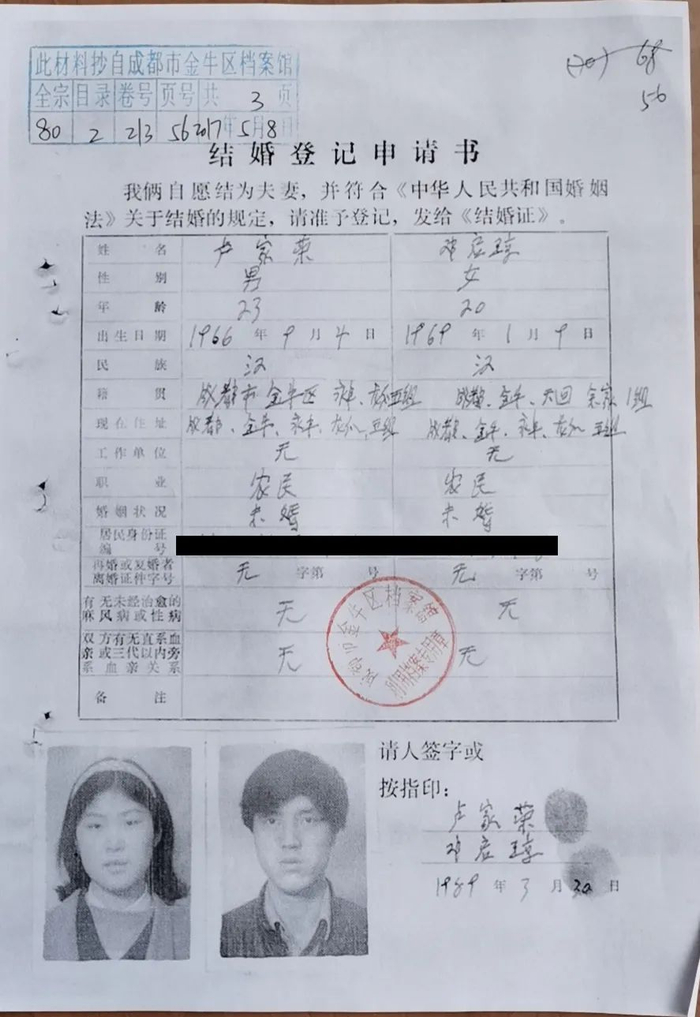 此材料抄自成都市金牛区档案馆
全宗 目录 卷号 页号 共 3 页
80 2 213 56 2017年5月8日
(70) 68
56
结婚登记申请书
我俩自愿结为夫妻，并符合《中华人民共和国婚姻
法》关于结婚的规定，请准予登记，发给《结婚证》。
姓名 卢家荣 邓启琼
性别 男 女
年龄 23 20
出生日期 1966年9月4日 1969年1月9日
民族 汉 汉
籍贯 成都市金牛区 五组 成都、金牛、天回 余家1组
现在住址 成都、金牛、 五组 成都、金牛、 五组
工作单位 无 无
职业 农民 农民
婚姻状况 未婚 未婚
居民身份证
编号
再婚或复婚者
离婚证件字号 无 字第 号 无 字第 号
有无未经治愈的
麻风病或性病 无 无
双方有无直系血
亲或三代以内旁
系血亲关系 无 无
备注
成都市金牛区档案馆
请人签字或
按指印：
卢家荣
邓启琼
1989年3月30日